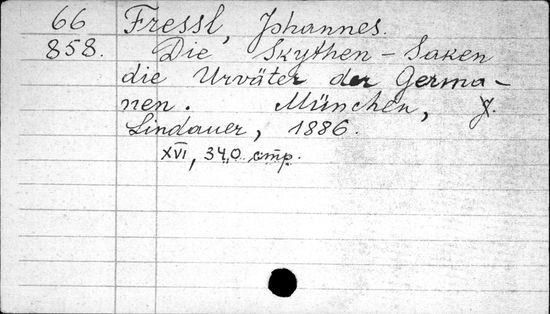 66 Fressl, Johannes.
858. Die Skythen-Saken
die Urväter der Germa-
nen. München, J.
Lindauer, 1886.
XVI, 340 стр.